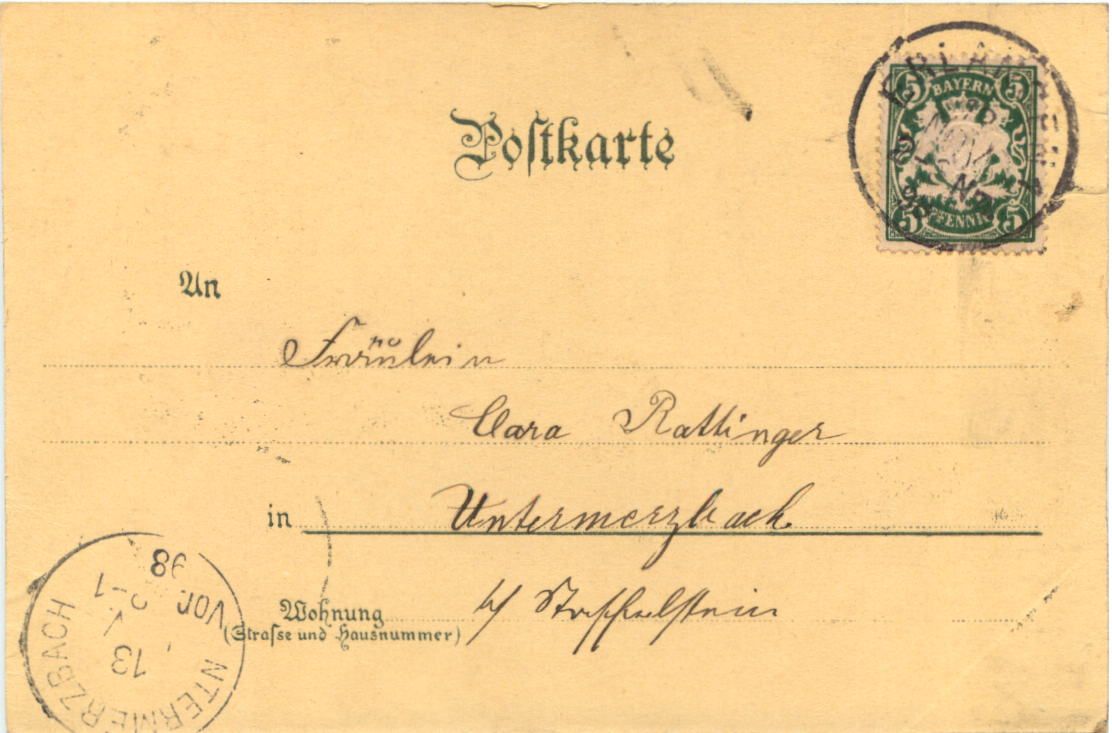 Postkarte
5 BAYERN 5
5 PFENNIG 5
ERLANGEN
NOV
An
Fräulein
Clara Rattinger
in Untermerzbach
Wohnung
(Strasse und Hausnummer)
b/ Staffelstein
NTERMERZBACH
13
VOR
98